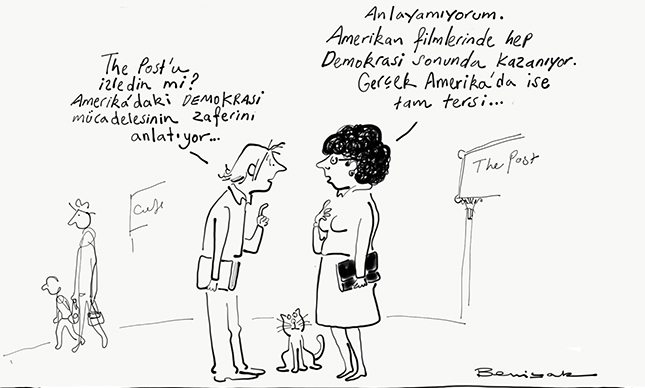 The Post'u
izledin mi?
Amerika'daki DEMOKRASİ
mücadelesinin zaferini
anlatıyor...
Anlayamıyorum.
Amerikan filmlerinde hep
Demokrasi sonunda kazanıyor.
Gerçek Amerika'da ise
tam tersi...
Cafe
The Post
Beniyak